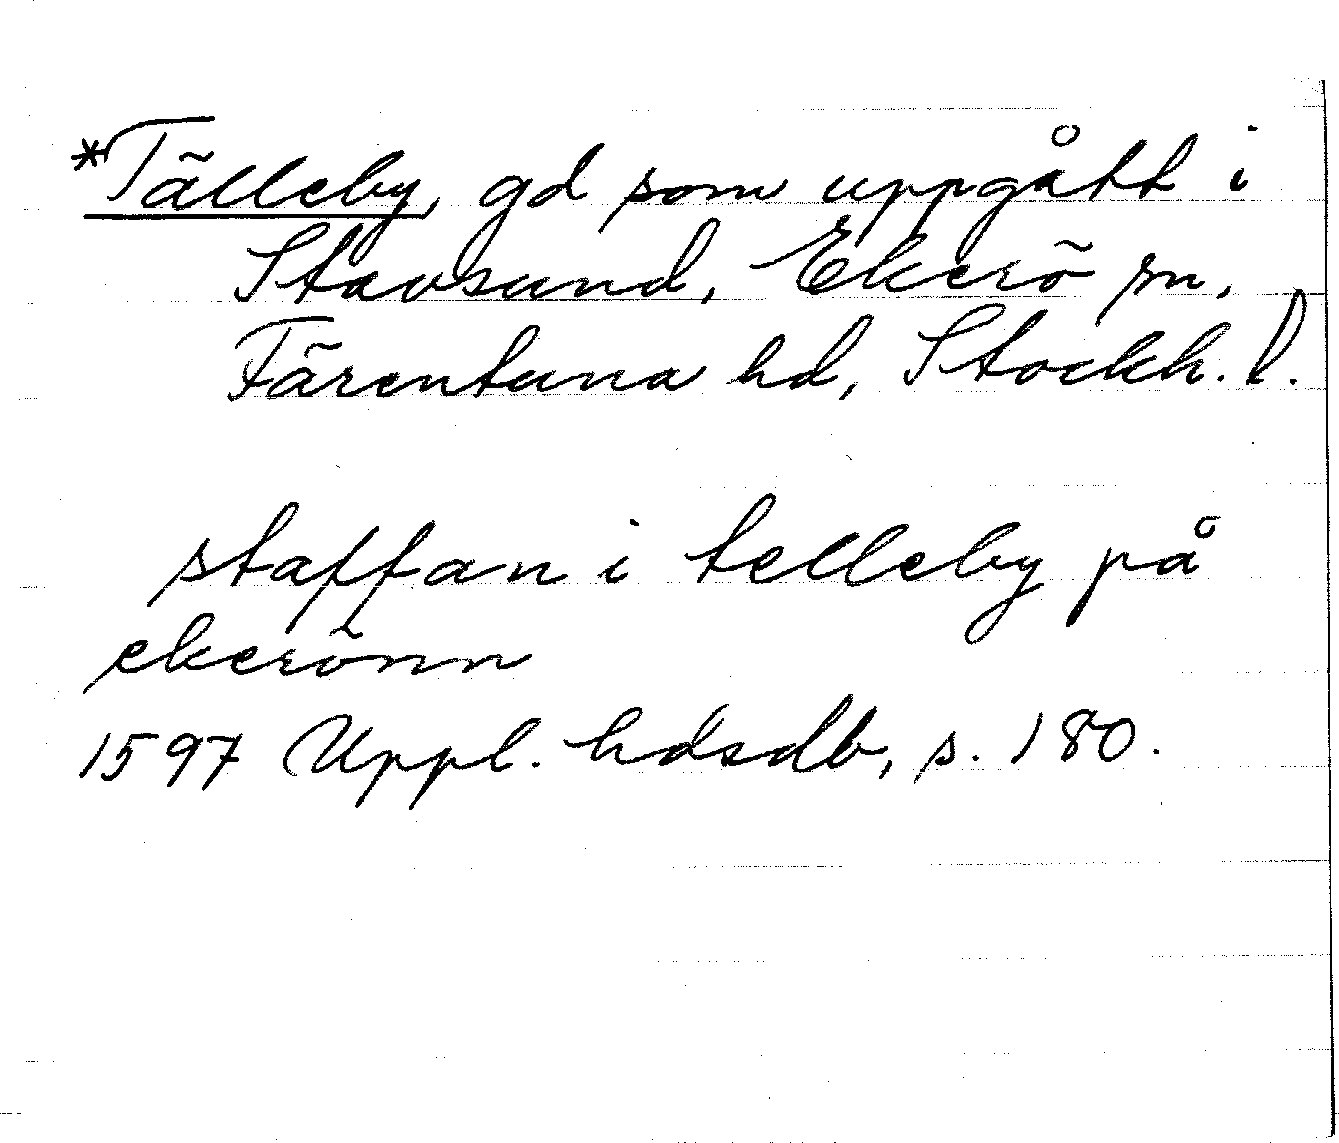 *Tälleby, gd som uppgått i
Stavsund, Ekerö sn,
Färentuna hd, Stockh. l.
staffan i telleby på
ekerönn
1597 Uppl. hdsdb, s. 180.